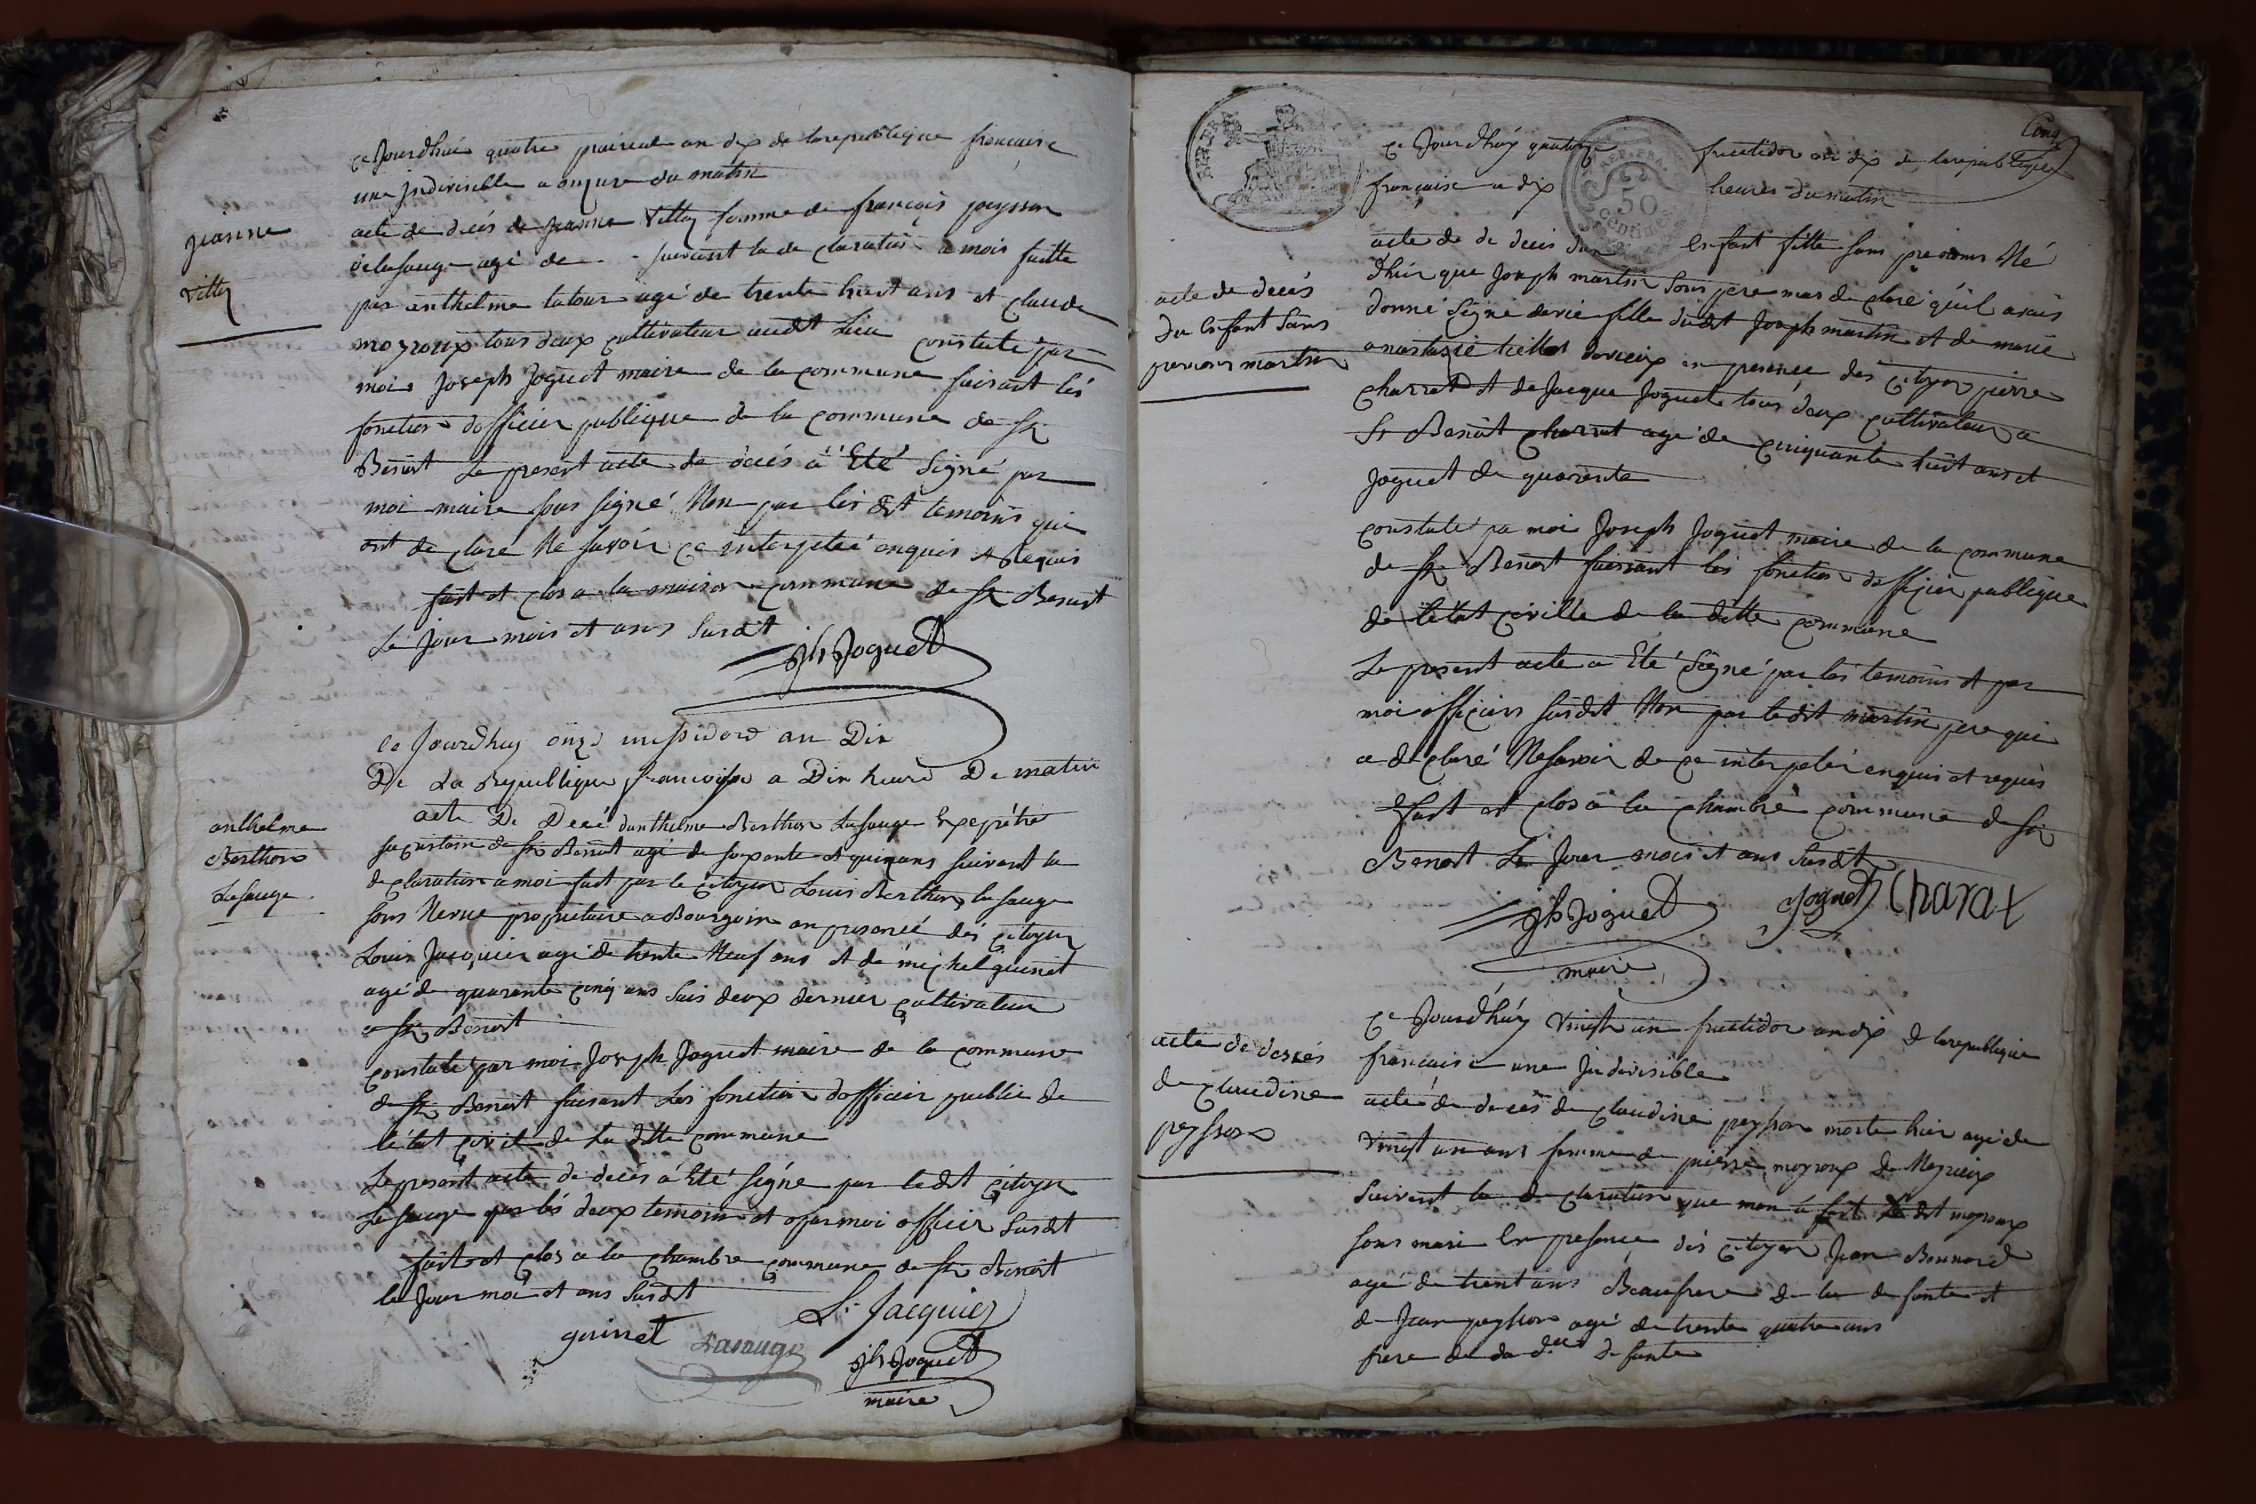 jeanne
villey
ce jourdhui quatre prairial an dix de la republique francaise
une jndivisible a onzeure du matin
acte de decés de jeanne villey femme de françois peysson
de lasauge agé de - suivant la de claration a mois faitte
par anthelme latour agé de trente huit ans et claude
moyroux tous deux cultivateur audt Lieu constaté par
mois Joseph Joguet maire de la commune faisant lés
fonction dofficier publique de la commune de St
Benoit Le present acte de décés à Eté signé par
moi maire sous signé Non par les dit temoins qui
ont de claré Ne savoir ce interpelé enquis et Requis
fait et clos a la maison commune de St Benoit
Le jour mois et ans susdit
jh Joguet
anthelme
Berthon
Lasauge
ce jourdhuy onze messidord an Dix
De La Republique francoise a Dix heure De matin
acte De Decé danthelme Berthon Lasauge Expeprétre
sacristain de St Benoit agé de soixante et quinzans suivant la
de claration a moi fait par le citoyen Louis Berthon lasauge
sons Neveu propriétaire a Bourgoin en presence dés citoyen
Louis Jacquier agé de trente Neuf ans et de michel guinet
agé de quarante cinq ans sais deux dernier cultivateur
a St Benoit
constaté par moi Joseph Joguet maire de la commune
de St Benoit faisant Les fonction dofficier public de
létat civil de La dtte commune
Le present acte de decés à Eté signé par ledit citoyen
Lasauge par lés deux temoins et par moi officier susdit
fait et clos a la chambre commune de St Benoit
le jour moi et ans susdit
L. Jacquier
guinet Lasauge
jh Joguet
maire
Cinq
REP. FRA.
50
Centimes
ce jourdhuy quatorze fructidor an dix de la republique
française a dix heures du matin
acte de decés
du Enfant sans
prenons martin
acte de de decés dun Enfant fille sans prenoms Né
dhier que Joseph martin sons pere mas de claré quil avais
donné signe davie fille dudit Joseph martin et de marie
anastasie tiellet en presence des citoyen pierre
charrat et de Jacque Joguet tous deux cultivateur a
St Benoit charrat agé de cinquante huit ans et
Joguet de quarente
constaté pa moi Joseph Joguet maire de la commune
de St Benoit faissant lés fonction dofficier publique
de létat civille de la ditte commune
Le present acte a Eté signé par lés temoins et par
moi officiers susdit Non par ledit martin pere qui
a de claré Nesavoir de ce interpelér enquis et requis
fait et clos à la chambre commune de St
Benoit Le Jour mois et ans susdit
jh Joguet Joguet Charat
maire
acte de décés
de claudine
peysson
ce jourdhuy vingt un fructidor an dix de la republique
francaise une jndivisible
acte de decés de claudine peysson morte hier agé de
vingt un ans femme de pierre moyroux de Meyrieux
suivant la de claration que mon à fait Ledit moyroux
sons mari En presence dés citoyen Jean Bonnard
agé de trent ans Beaufrere de la defunte et
de Jean peysson agé de trente quatre ans
frere de la dte defunte